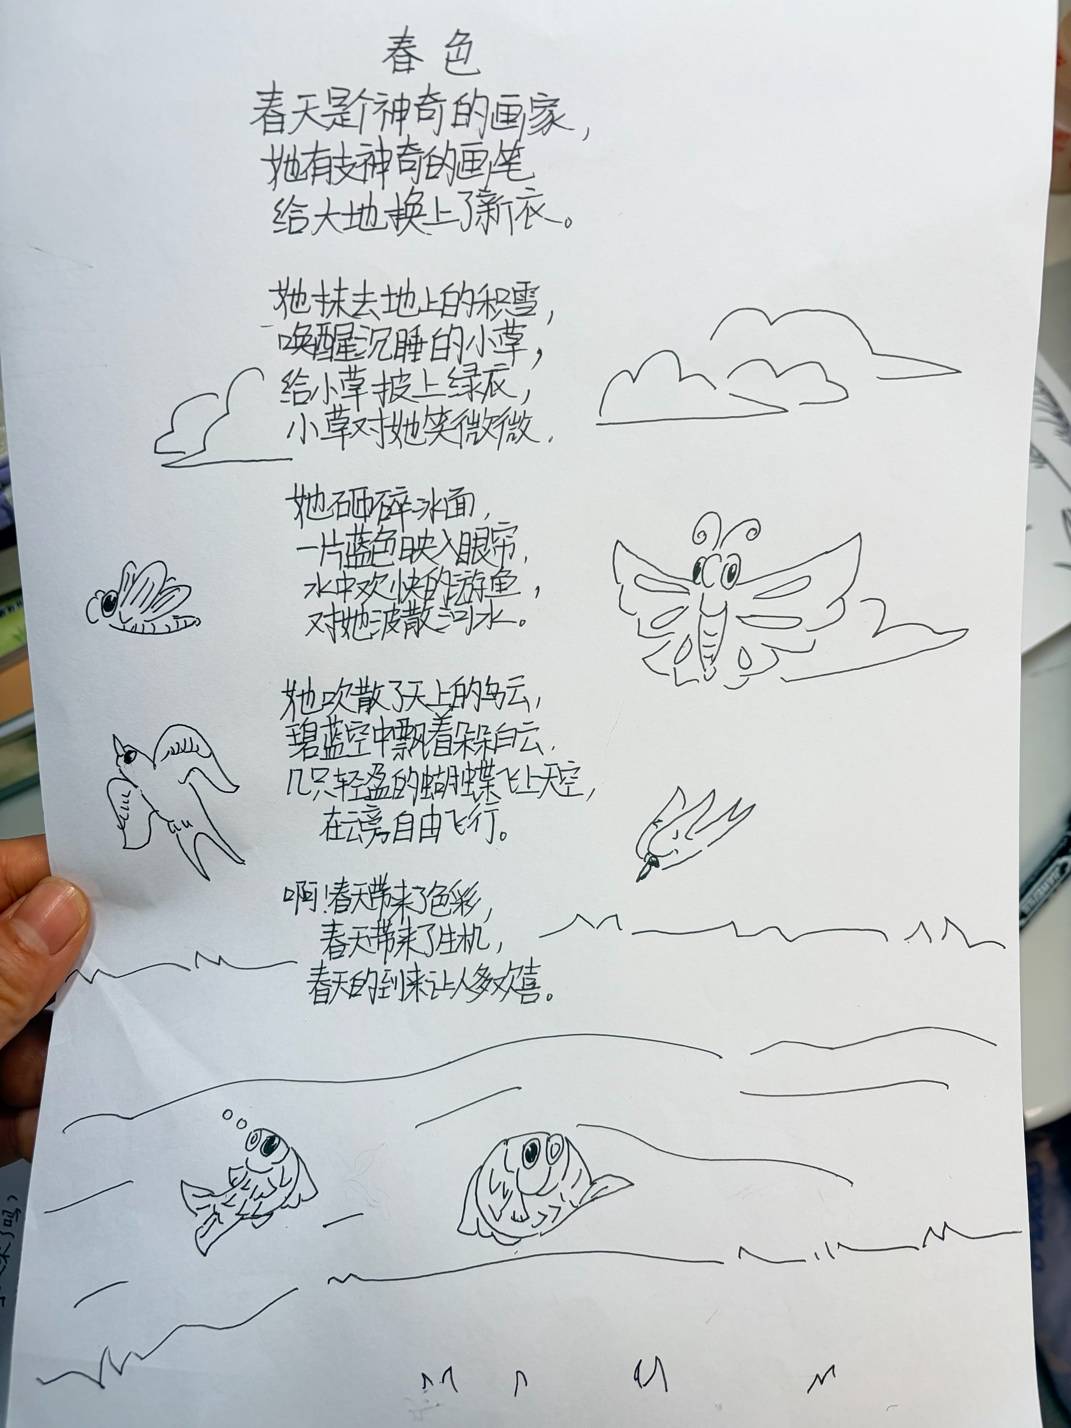 春色
春天是个神奇的画家,
她有支神奇的画笔
给大地换上了新衣。
她抹去地上的积雪,
唤醒沉睡的小草,
给小草披上绿衣,
小草对她笑微微.
她砸碎冰面,
一片蓝色映入眼帘,
水中欢快的游鱼,
对她波散河水。
她吹散了天上的乌云,
碧蓝空中飘着朵朵白云.
几只轻盈的蝴蝶飞上天空,
在云旁自由飞行。
啊!春天带来了色彩,
春天带来了生机,
春天的到来让人多欢喜。